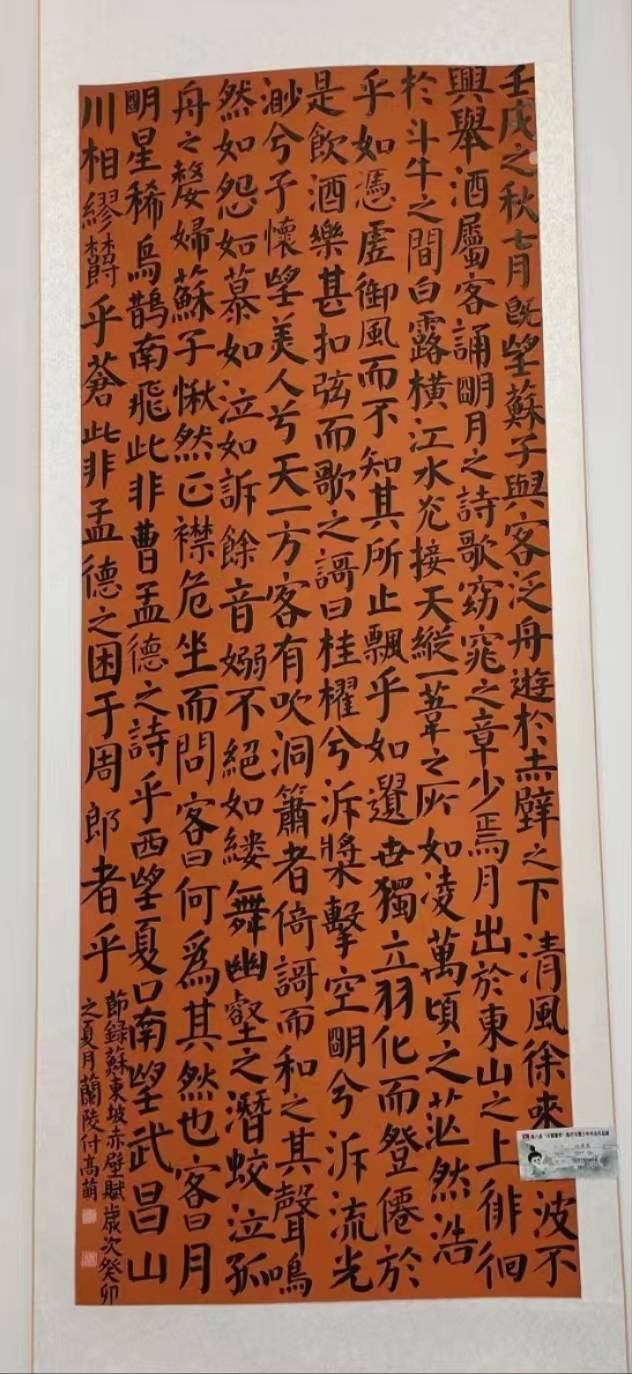 壬戌之秋七月既望蘇子與客泛舟遊於赤壁之下清風徐來波不
興舉酒屬客誦明月之詩歌窈窕之章少焉月出於東山之上徘徊
於斗牛之間白露橫江水光接天縱一葦之所如凌萬頃之茫然浩
乎如憑虛御風而不知其所止飄乎如遺世獨立羽化而登僊於
是飲酒樂甚扣弦而歌之謌曰桂櫂兮泝槳擊空明兮泝流光
渺兮予懷望美人兮天一方客有吹洞簫者倚謌而和之其聲嗚
然如怨如慕如泣如訴餘音嫋不絕如縷舞幽壑之潛蛟泣孤
舟之嫠婦蘇子愀然正襟危坐而問客曰何爲其然也客曰月
明星稀烏鵲南飛此非曹孟德之詩乎西望夏口南望武昌山
川相繆鬱乎蒼此非孟德之困于周郎者乎
節録蘇東坡赤壁賦歲次癸卯
之夏月蘭陵付高萌